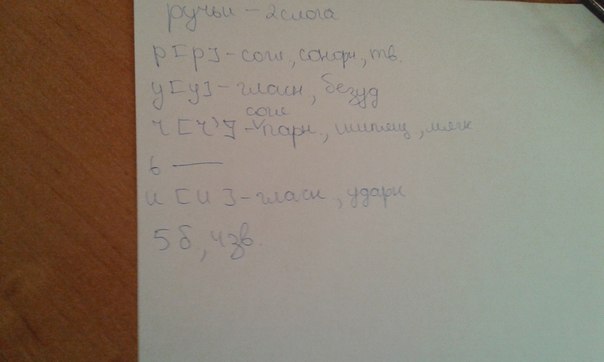 ручьи - 2 слога
р [р] - согл, сонорн, тв.
у [у] - гласн, безуд
ч [ч'] - согл парн, шипящ, мягк
ь —
и [и] - гласн, ударн
5 б, 4 зв.